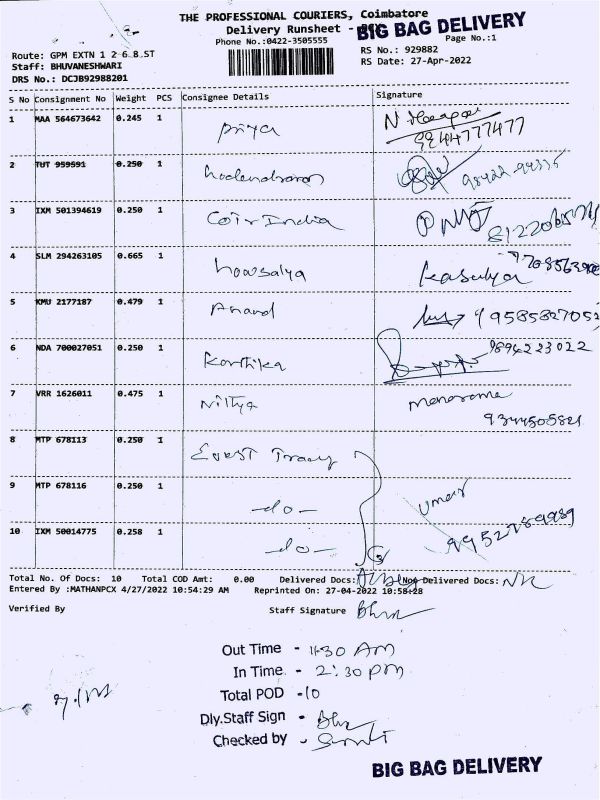 THE PROFESSIONAL COURIERS, Coimbatore
Delivery Runsheet - BIG BAG DELIVERY
Phone No.:0422-3505555 Page No.:1
Route: GPM EXTN 1 2 6 8 ST RS No.: 929882
Staff: BHUVANESHWARI RS Date: 27-Apr-2022
DRS No.: DCJB92988201
S No Consignment No Weight PCS Consignee Details Signature
1 MAA 564673642 0.245 1 Priya 9244777477
2 TUT 959591 0.250 1
3 IXM 501394619 0.250 1 Coir India
4 SLM 294263105 0.665 1 howsalya Kasulya
5 KMU 2177187 0.479 1 Anand 9585827052
6 NDA 700027051 0.250 1 Karthika 9894223022
7 VRR 1626011 0.475 1 Nithya manorama
9344505821
8 MTP 678113 0.250 1
9 MTP 678116 0.250 1 -do- Umar
10 IXM 50014775 0.258 1 -do- 9952789989
Total No. Of Docs: 10 Total COD Amt: 0.00 Delivered Docs: Non Delivered Docs: Nil
Entered By :MATHANPCX 4/27/2022 10:54:29 AM Reprinted On: 27-04-2022 10:58:28
Verified By Staff Signature
Out Time - 11:30 AM
In Time - 2:30 pm
Total POD - 10
Dly.Staff Sign -
Checked by -
BIG BAG DELIVERY